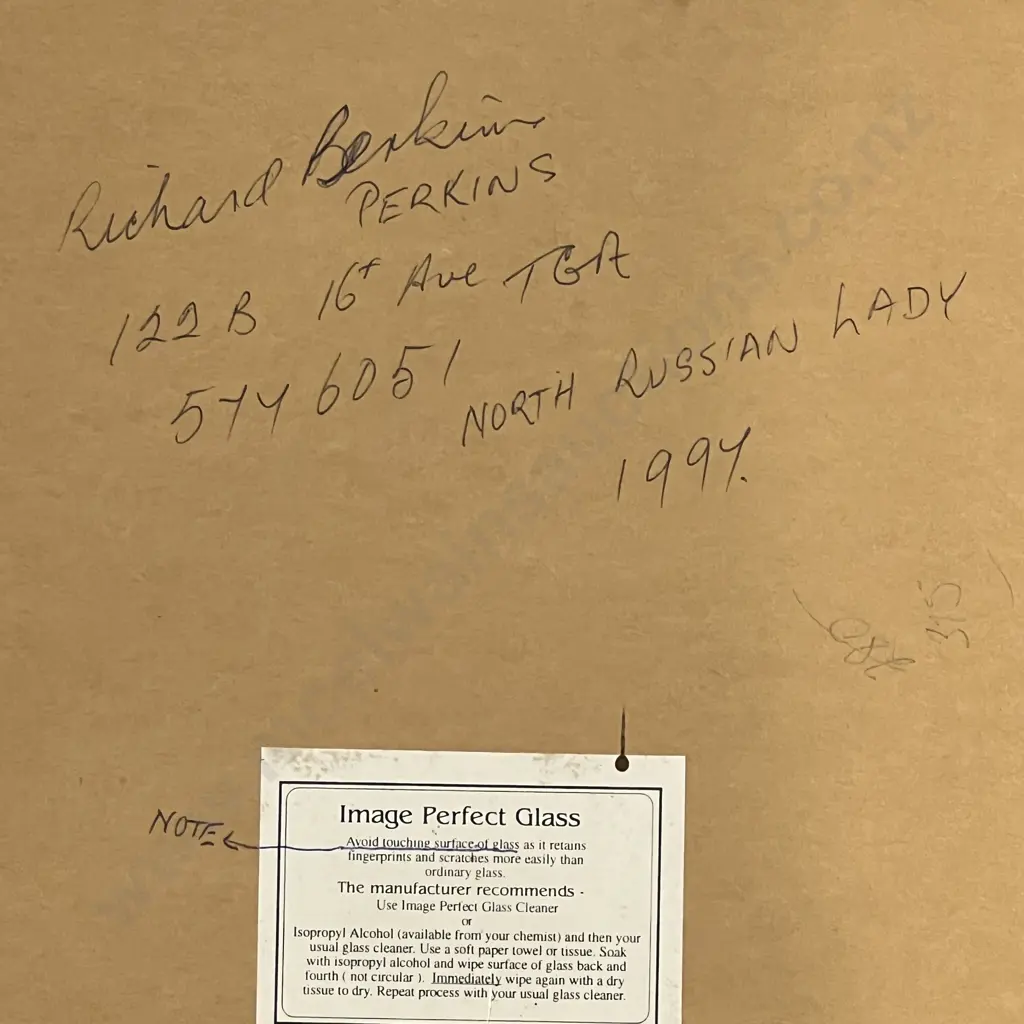 Richard Berkins
PERKINS
122 B 16t Ave TGA
5746051
NORTH RUSSIAN LADY
1994.
315
NOTE
Image Perfect Glass
Avoid touching surface of glass as it retains
fingerprints and scratches more easily than
ordinary glass.
The manufacturer recommends -
Use Image Perfect Glass Cleaner
or
Isopropyl Alcohol (available from your chemist) and then your
usual glass cleaner. Use a soft paper towel or tissue. Soak
with isopropyl alcohol and wipe surface of glass back and
fourth ( not circular ). Immediately wipe again with a dry
tissue to dry. Repeat process with your usual glass cleaner.